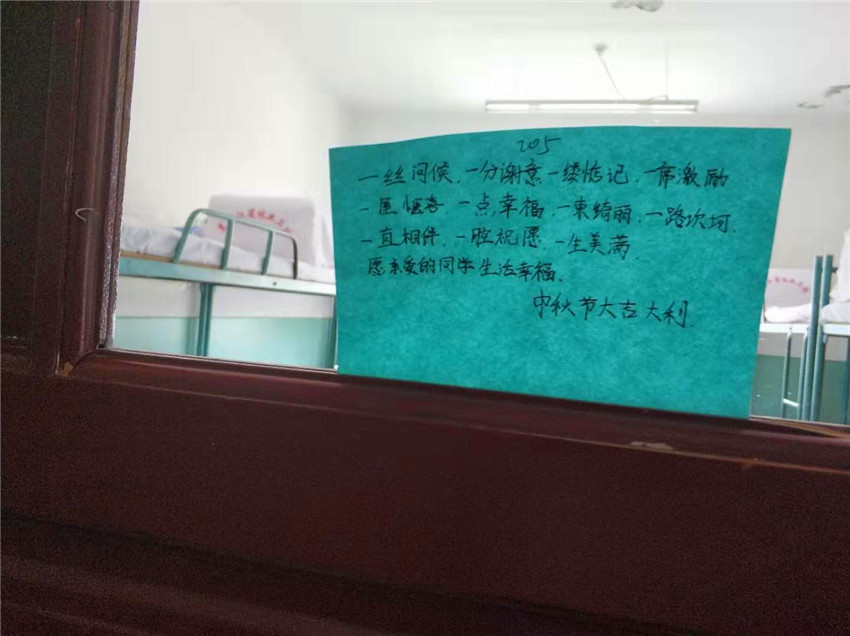 205
一丝问候,一分谢意 一缕惦记,一席激励
一点幸福,一束绮丽,一路坎坷.
一直相伴,一腔祝愿,一生美满.
愿亲爱的同学生活幸福.
中秋节大吉大利.